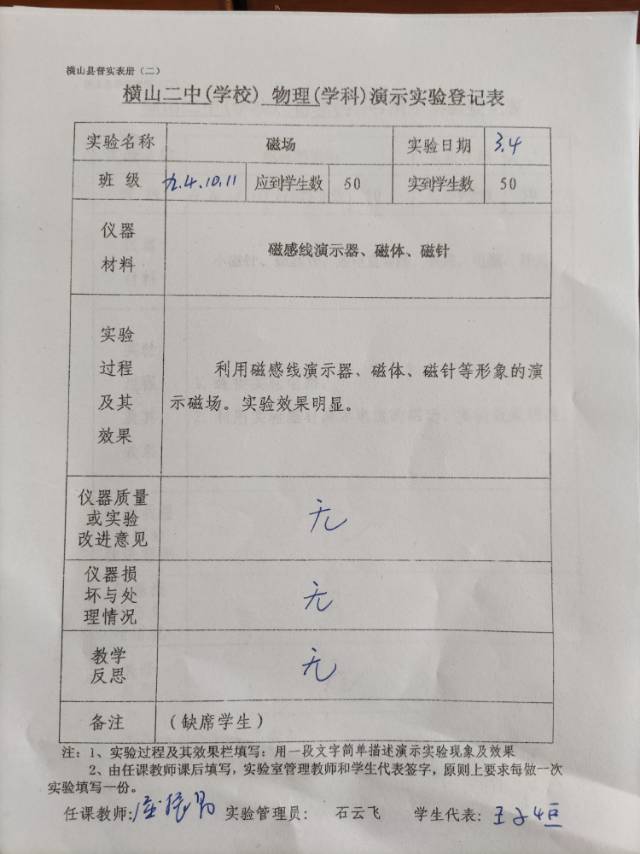 横山县督实表册（二）
横山二中(学校) 物理(学科)演示实验登记表
实验名称 磁场 实验日期 3.4
班 级 九.4.10.11 应到学生数 50 实到学生数 50
仪器
材料
磁感线演示器、磁体、磁针
实验
过程
及其
效果
利用磁感线演示器、磁体、磁针等形象的演
示磁场。实验效果明显。
仪器质量
或实验
改进意见
无
仪器损
坏与处
理情况
无
教学
反思
无
备注 （缺席学生）
注：1、实验过程及其效果栏填写：用一段文字简单描述演示实验现象及效果
2、由任课教师课后填写，实验室管理教师和学生代表签字，原则上要求每做一次
实验填写一份。
任课教师: 实验管理员： 石云飞 学生代表: 王子恒